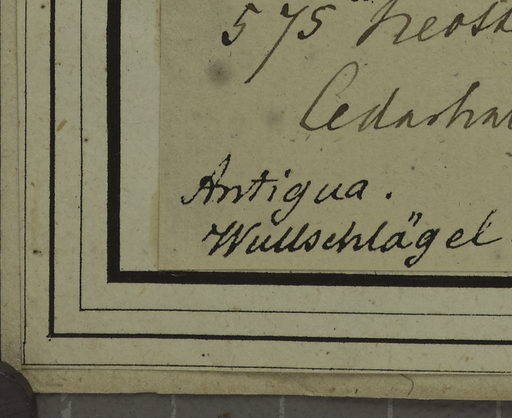 575
Cedarha
Antigua.
Wullschlägel